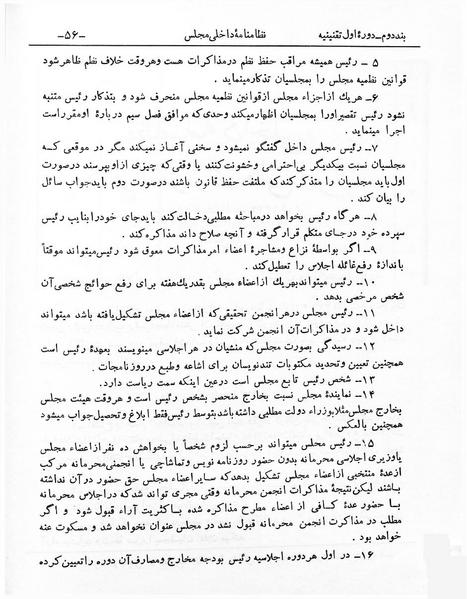 بند دوم ــ دورهٔ اول تقنینیه نظامنامهٔ داخلی مجلس ــ۵۶ــ
۵ ــ رئیس همیشه مراقب حفظ نظم در مذاکرات هست و هر وقت خلاف نظم ظاهر شود
قوانین نظمیه مجلس را بمجلسیان تذکار مینماید .
۶ــ هر یك از اجزاء مجلس از قوانین نظمیه مجلس منحرف شود و بتذکار رئیس متنبه
نشود رئیس تقصیر اورا بمجلسیان اظهار میکند وحدی که موافق فصل سیم در بارهٔ او مقرر است
اجرا مینماید .
۷ــ رئیس مجلس داخل گفتگو نمیشود و سخنی آغاز نمیکند مگر در موقعی کـه
مجلسیان نسبت بیکدیگر بی‌احترامی و خشونت کنند یا وقتی که چیزی از او بپرسند در صورت
اول باید مجلسیان را متذکر کند که ملتفت حفظ قانون باشند در صورت دوم باید جواب سائل
را بیان کند .
۸ــ هر گاه رئیس بخواهد در مباحثهٔ مطلبی دخالت کند باید جای خود را بنایب رئیس
سپرده خود در جای متکلم قرار گرفته و آنچه صلاح داند مذاکره کند.
۹ــ اگر بواسطهٔ نزاع و مشاجرهٔ اعضاء امر مذاکرات معوق شود رئیس میتواند موقتاً
باندازهٔ رفع غائله اجلاس را تعطیل کند.
۱۰ــ رئیس میتواند بهر یك از اعضاء مجلس بقدر یك هفته برای رفع حوائج شخصی آن
شخص مرخصی بدهد .
۱۱ــ رئیس مجلس در هر انجمن تحقیقی که از اعضاء مجلس تشکیل یافته باشد میتواند
داخل شود و در مذاکرات آن انجمن شرکت نماید .
۱۲ــ رسیدگی بصورت مجلس که منشیان در هر اجلاسی مینویسند بعهدهٔ رئیس است
همچنین تعیین و تحدید مکتوبات تندنویسان برای اشاعه و طبع در روزنامجات .
۱۳ــ شخص رئیس تابع مجلس است در عین اینکه سمت ریاست دارد.
۱۴ــ نمایندهٔ مجلس نسبت بخارج منحصر بشخص رئیس است و هر وقت هیئت مجلس
بخارج مجلس مثلا بوزراء دولت مطلبی داشته باشد بتوسط رئیس فقط ابلاغ و تحصیل جواب میشود
همچنین بالعکس .
۱۵ــ رئیس مجلس میتواند بر حسب لزوم شخصاً یا بخواهش ده نفر از اعضاء مجلس
یا وزیری اجلاسی محرمانه بدون حضور روزنامه نویس و تماشاچی یا انجمنی محرمانه مرکب
از عدهٔ منتخبی از اعضاء مجلس تشکیل بدهد که سایر اعضاء مجلس حق حضور در آن نداشته
باشند لیکن نتیجهٔ مذاکرات انجمن محرمانه وقتی مجری تواند شد که در اجلاس محرمانه
با حضور عدهٔ کافی از اعضاء مطرح مذاکره شده باکثریت آراء قبول شود و اگر
مطلب در مذاکرت انجمن محرمانه قبول نشد در مجلس عنوان نخواهد شد و مسکوت عنه
خواهد بود .
۱۶ــ در اول هر دوره اجلاسیه رئیس بودجه مخارج و مصارف آن دوره را تعیین کرده